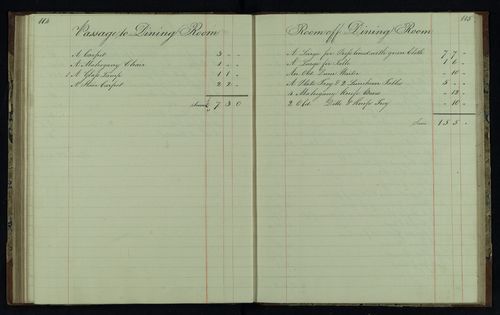 114
Passage to Dining Room
A Carpet 3 - -
A Mahogany Chair 1 - -
1 A Glass Lamp 1 1 -
A Stair Carpet 2 2 -
7 3 0
115
Room off Dining Room
A Large with green Cloth 7 7 -
A Large for Table 1 6 -
An Old Dumb Waiter - 10 -
A Plate Tray & 2 Luncheon Tables 5 - -
4 Mahogany Knife Cases - 12 -
2 Old Ditto & Knife Tray - 10 -
15 5 -